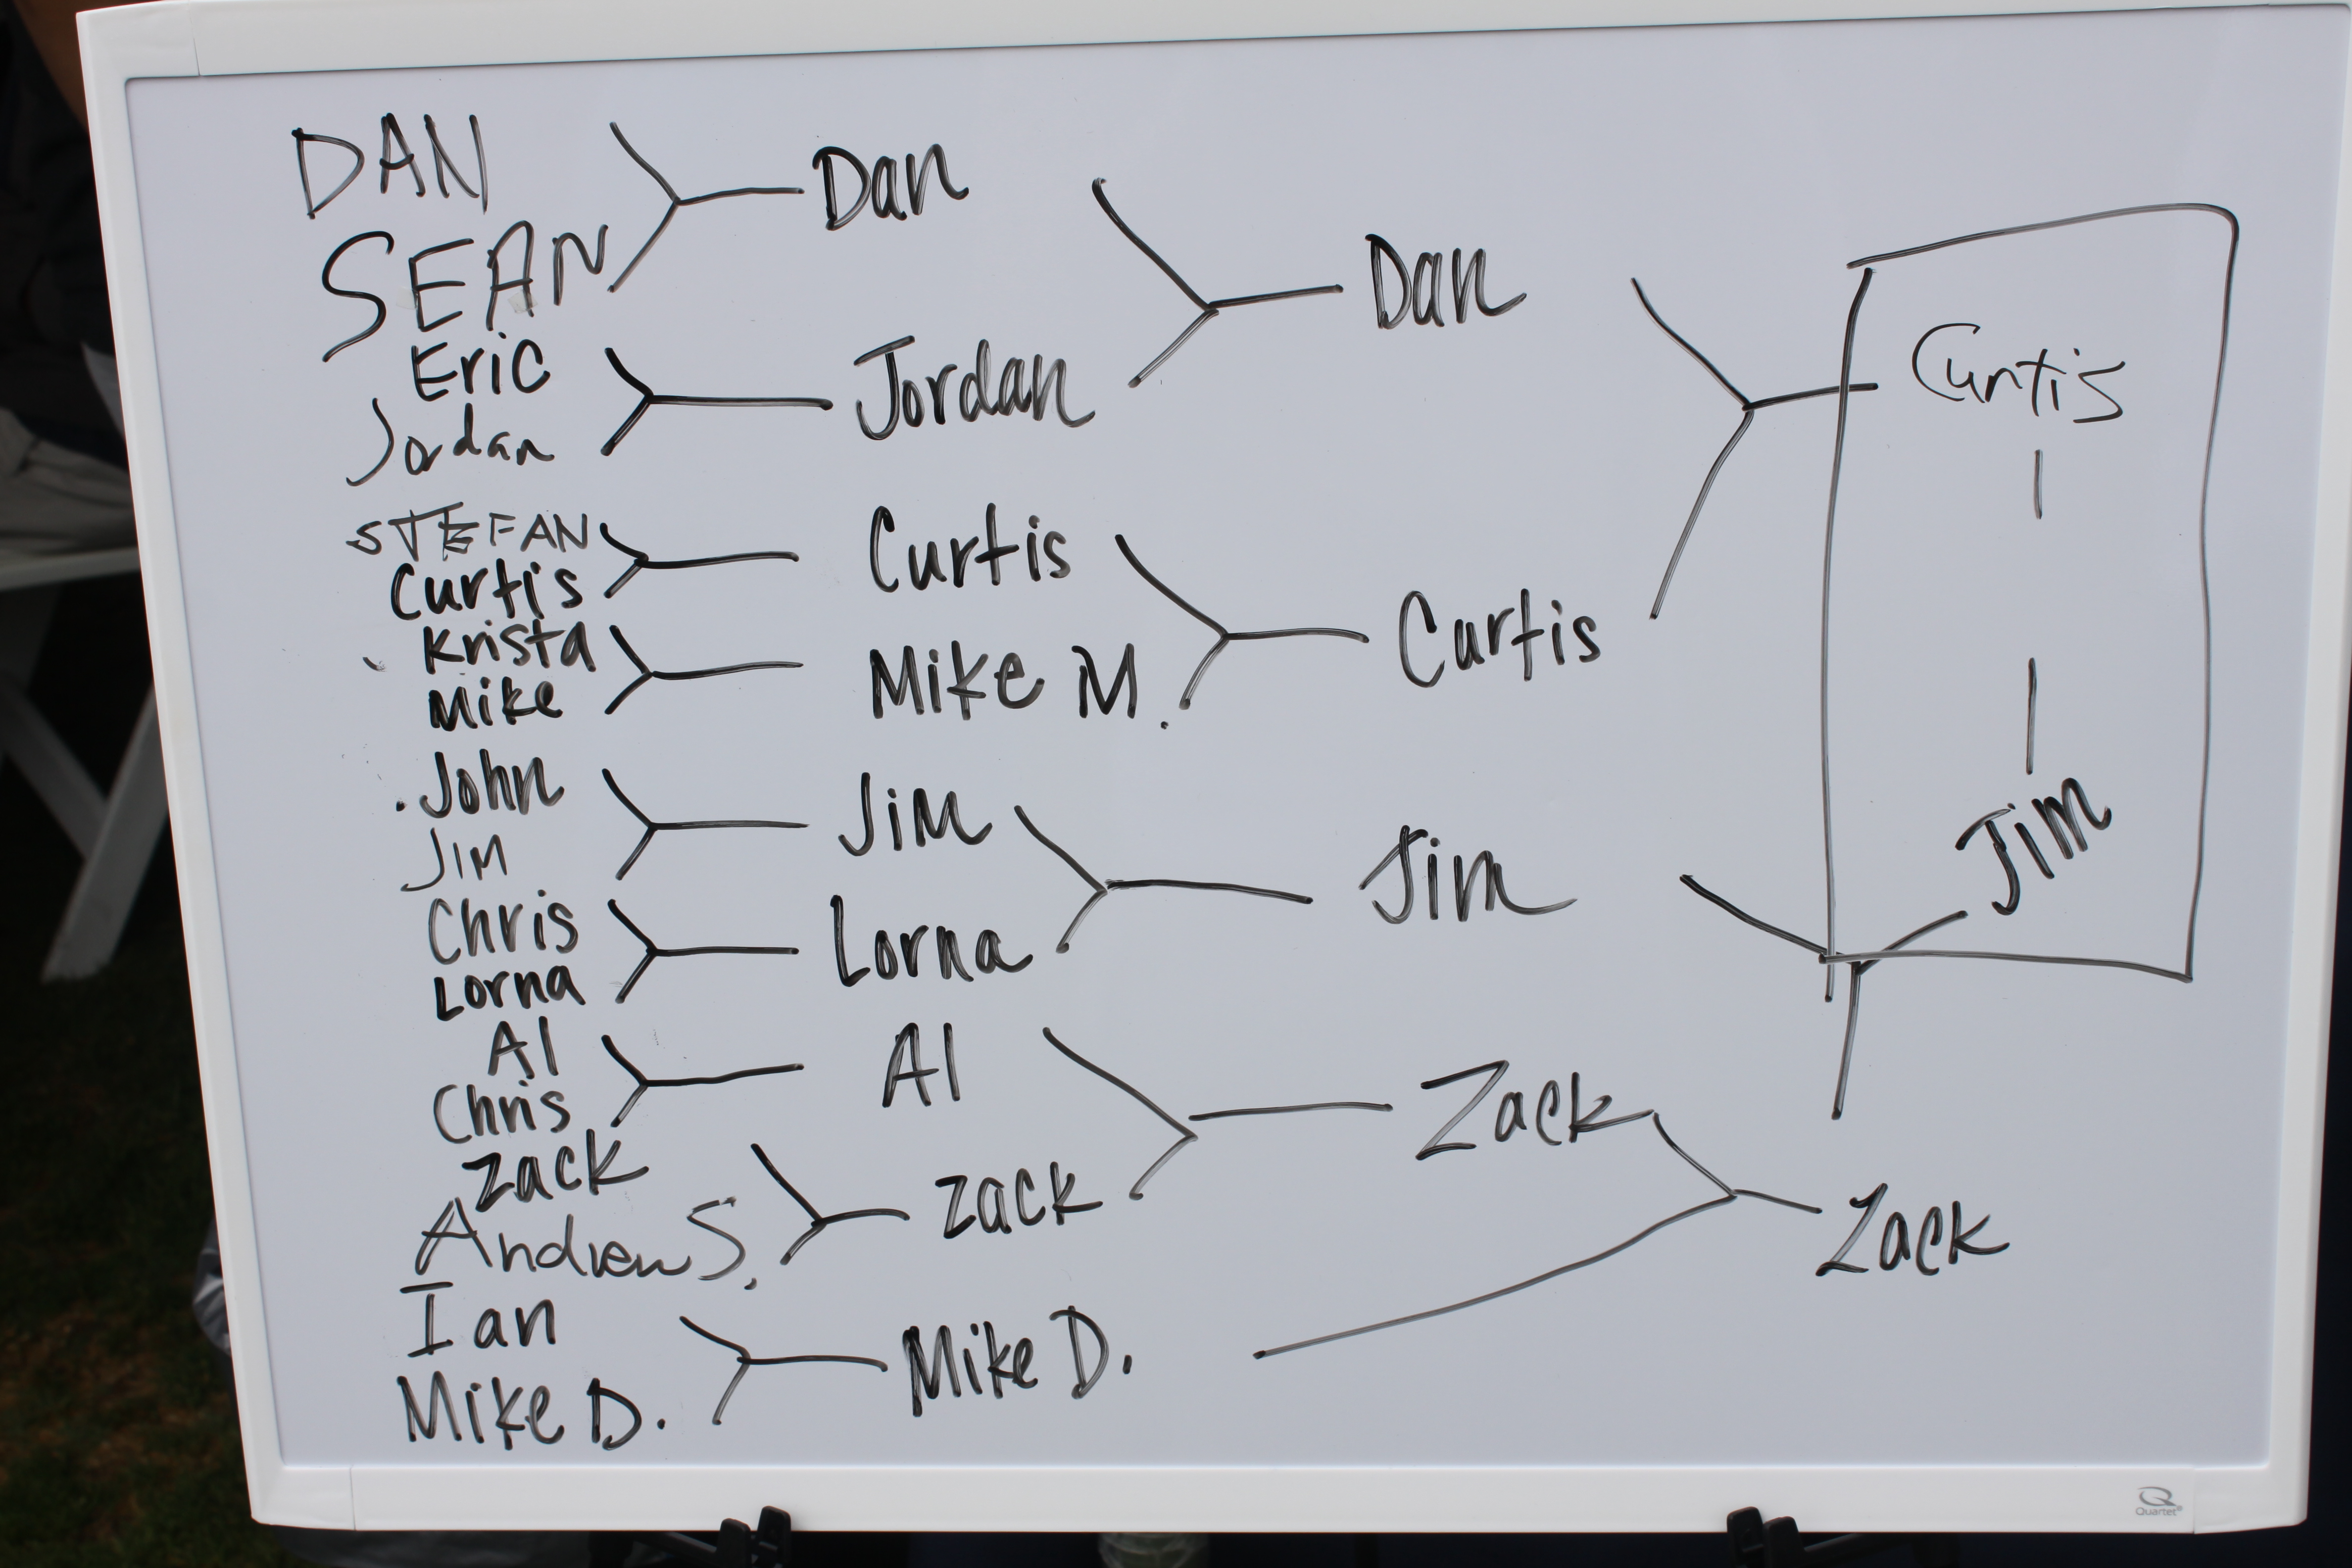 DAN
SEAN
Eric
Jordan
STEFAN
Curtis
Krista
Mike
John
JIM
Chris
Lorna
Al
Chris
Zack
Andrew S.
Ian
Mike D.
Dan
Jordan
Curtis
Mike M.
Jim
Lorna
Al
Zack
Mike D.
Dan
Curtis
Jim
Zack
Zack
Curtis
Jim
Quartet